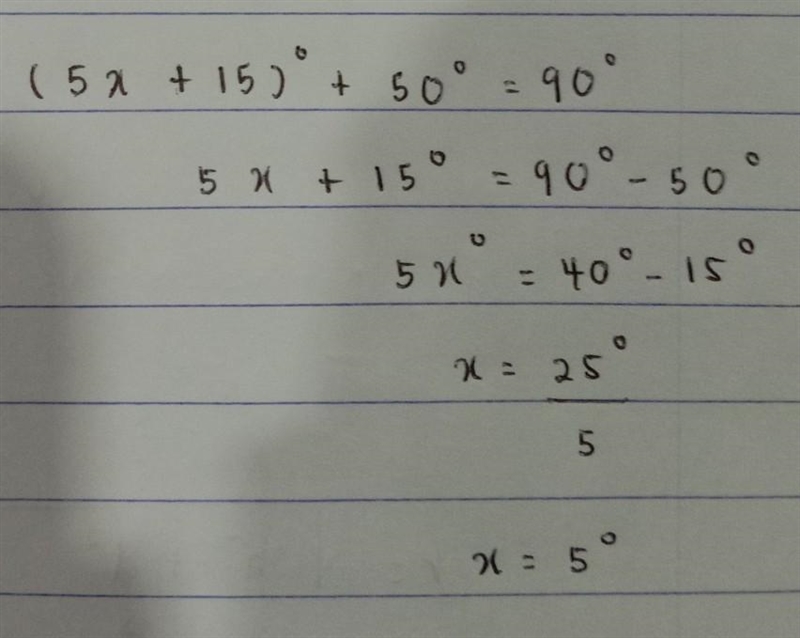 (5x + 15)° + 50° = 90°
5x + 15° = 90° - 50°
5x° = 40° - 15°
x = 25°
5
x = 5°